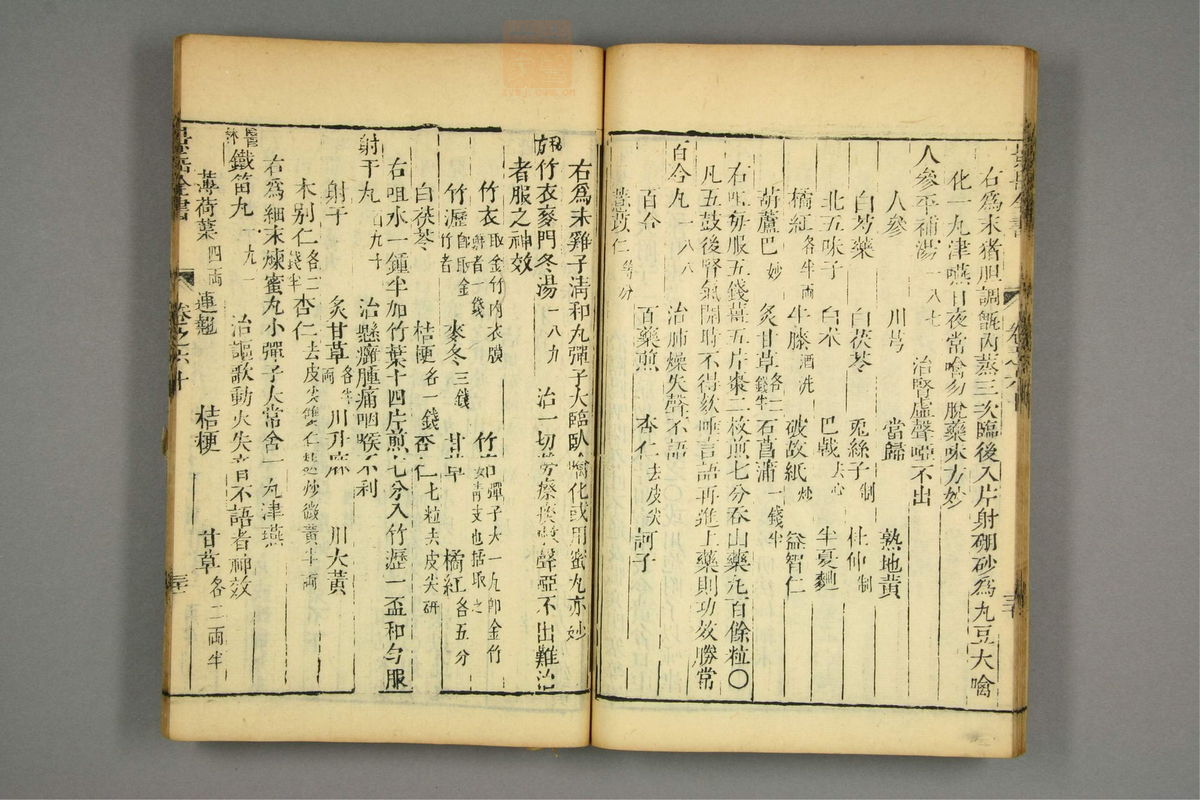 右爲末猪胆調甑内蒸三次臨後入片射硼砂爲丸豆大噙
化一丸津嚥日夜常噙勿脫藥味方妙
人參平補湯一八七 治腎虛聲啞不出
人參 川芎 當歸 熟地黃
白芍藥 白茯苓 兎絲子制 杜仲制
北五味子 白朮 巴戟去心 半夏麯
橘紅各半両 牛膝酒洗 破故紙炒 益智仁
葫蘆巴炒 炙甘草各二錢半 石菖蒲一錢半
右㕮每服五錢薑五片棗二枚煎七分吞山藥丸百餘粒〇
凡五鼓後腎氣開時不得欬唾言語再進上藥則功效勝常
百合丸一八八 治肺燥失聲不語
百合 百藥煎 杏仁去皮尖 訶子
薏苡仁等分
右爲末雞子清和丸彈子大臨臥噙化或用蜜丸亦妙
秘方竹衣麥門冬湯一八九 治一切勞瘵痰嗽聲啞不出難治
者服之神效
竹衣取金竹内衣膜鮮者一錢 竹茹彈子大一丸即金竹青皮也括取之
竹瀝即取金竹者 麥冬三錢 甘草 橘紅各五分
白茯苓 桔梗各一錢 杏仁七粒去皮尖研
右咀水一鍾半加竹葉十四片煎七分入竹瀝一盃和勻服
射干丸百九十 治懸癰腫痛咽喉不利
射干 炙甘草各半両 川升麻 川大黃
木别仁各二錢半 杏仁去皮尖雙仁麸炒微黃半両
右爲細末煉蜜丸小彈子大常含一丸津嚥
鐵笛丸一九一 治謳歌動火失音不語者神效
薄荷葉四両 連翹 桔梗 甘草各二両半
景岳全書
卷之六十